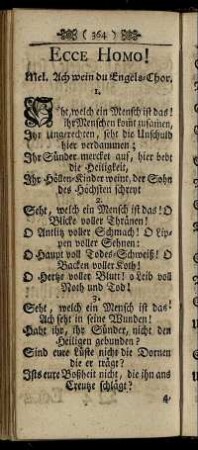 ( 364. )
ECCE HOMO!
Mel. Ach wein du Engels-Chor.
1.
Seht, welch ein Mensch ist das!
ihr Menschen komt zusamen,
Ihr Ungerechten, seht die Unschuld
hier verdammen;
Ihr Sünder mercket auf, hier bebt
die Heiligkeit,
Ihr Höllen-Kinder weint, der Sohn
des Höchsten schreyt
2.
Seht, welch ein Mensch ist das! O
Blicke voller Thränen!
O Antlitz voller Schmach! O Lip-
pen voller Sehnen!
O Haupt voll Todes-Schweiß! O
Backen voller Koth!
O Hertze voller Blut! o Leib voll
Noth und Tod!
3.
Seht, welch ein Mensch ist das!
Ach seht in seine Wunden!
Habt ihr, ihr Sünder, nicht den
Heiligen gebunden?
Sind eure Lüste nicht die Dornen
die er trägt?
Ists eure Boßheit nicht, die ihn ans
Creutze schlägt?
4.